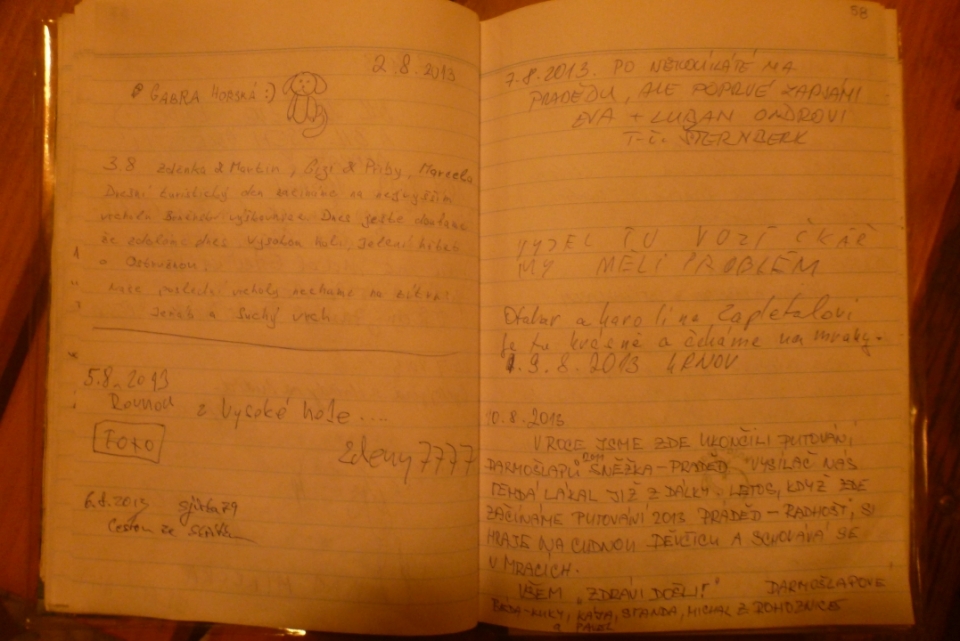 2.8.2013
GABRA HORSKÁ :)
3.8 Zdenka & Martin, Gizi & Přiby, Marcela
Dnešní turistický den začínáme na nejvyšším
vrcholu
že zdoláme dnes Vysokou Holi, Jelení hřbet
a Ostružnou.
Naše poslední vrcholy necháme na zítra:
Jeřáb a Suchý vrch
5.8.2013
Rovnou z Vysoké hole....
FOXO
Zdeny7777
6.8.2013 gjirka79
Cestou ze
58
7.8.2013. PO NĚKOLIKÁTÉ NA
PRADĚDU, ALE POPRVÉ ZAPSANI
EVA + LUBAN ONDROVI
T-Č. ŠTERNBERK
VYJEL TU VOZÍČKÁŘ
MY MĚLI PROBLÉM
Otakar a Karolina Zapletalovi
je tu krásně a čekáme na mraky.
9.8.2013 KRNOV
10.8.2013
V ROCE JSME ZDE UKONČILI PUTOVÁNÍ
DARMOŠLAPŮ 2011 SNĚŽKA - PRADĚD. VYSÍLAČ NÁS
TEHDÁ LÁKAL JIŽ Z DÁLKY. LETOS, KDYŽ ZDE
ZAČÍNÁME PUTOVÁNÍ 2013 PRADĚD - RADHOŠŤ, SI
HRAJE NA CUDNOU DĚVČICU A SCHOVÁVÁ SE
V MRACÍCH.
VŠEM "ZDRÁVI DOŠLI!" DARMOŠLAPOVÉ
KÁJA, STANDA, MICHAL Z ROHOZNICE
a PAVEL